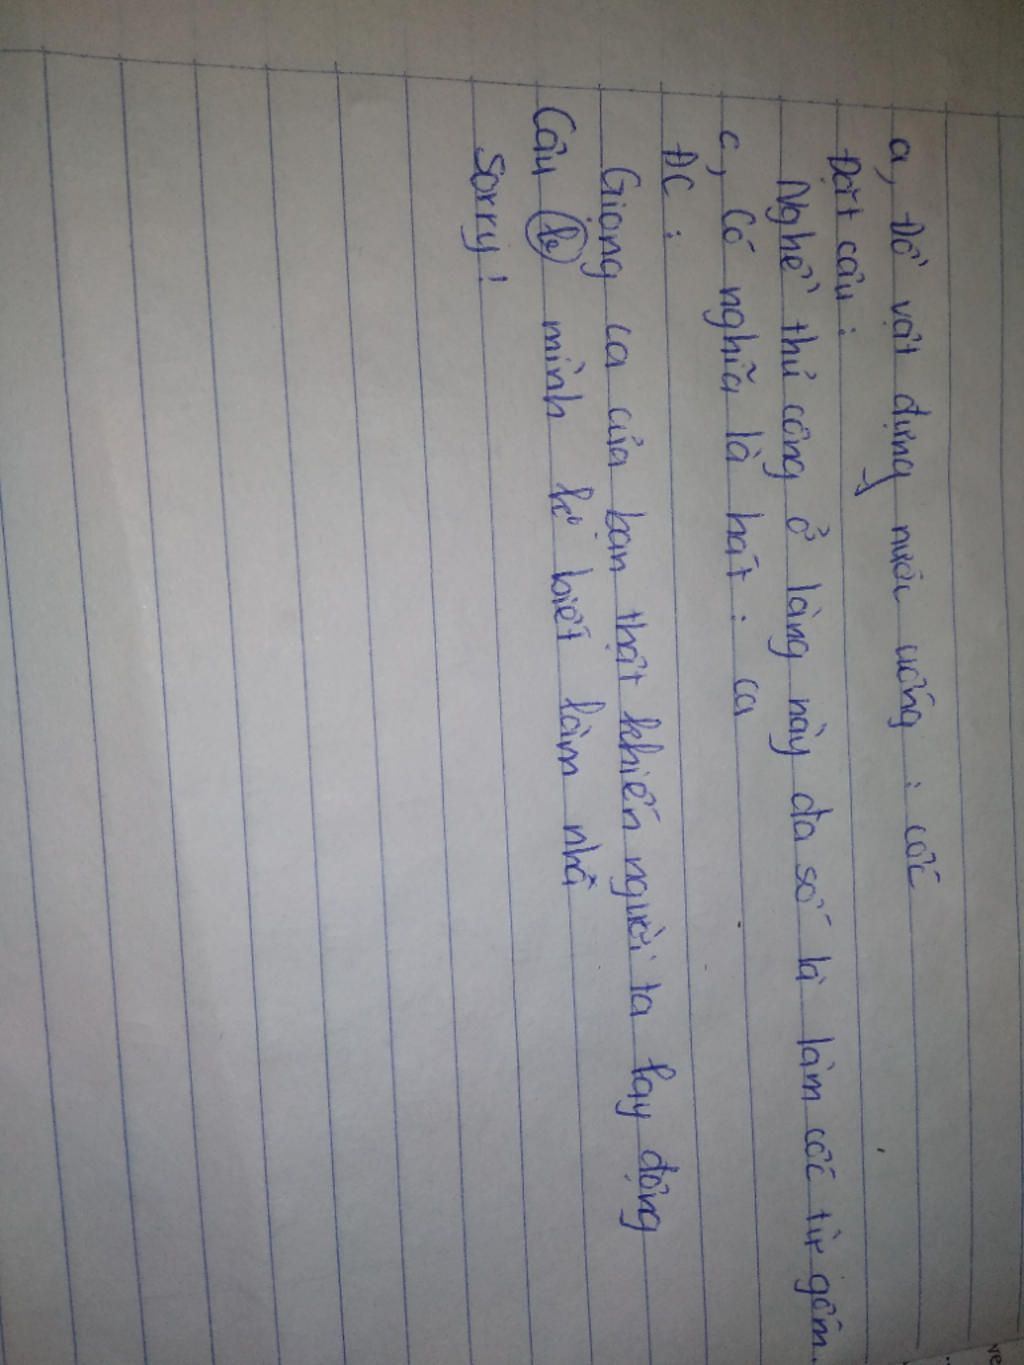 a, Đồ vật đựng nước uống : cốc
Đặt câu :
Nghề thủ công ở làng này đa số là làm cốc từ gốm.
c, Có nghĩa là hát : ca
ĐC :
Giọng ca của bạn thật khiến người ta lay động
Câu b mình k biết làm nhá
Sorry!